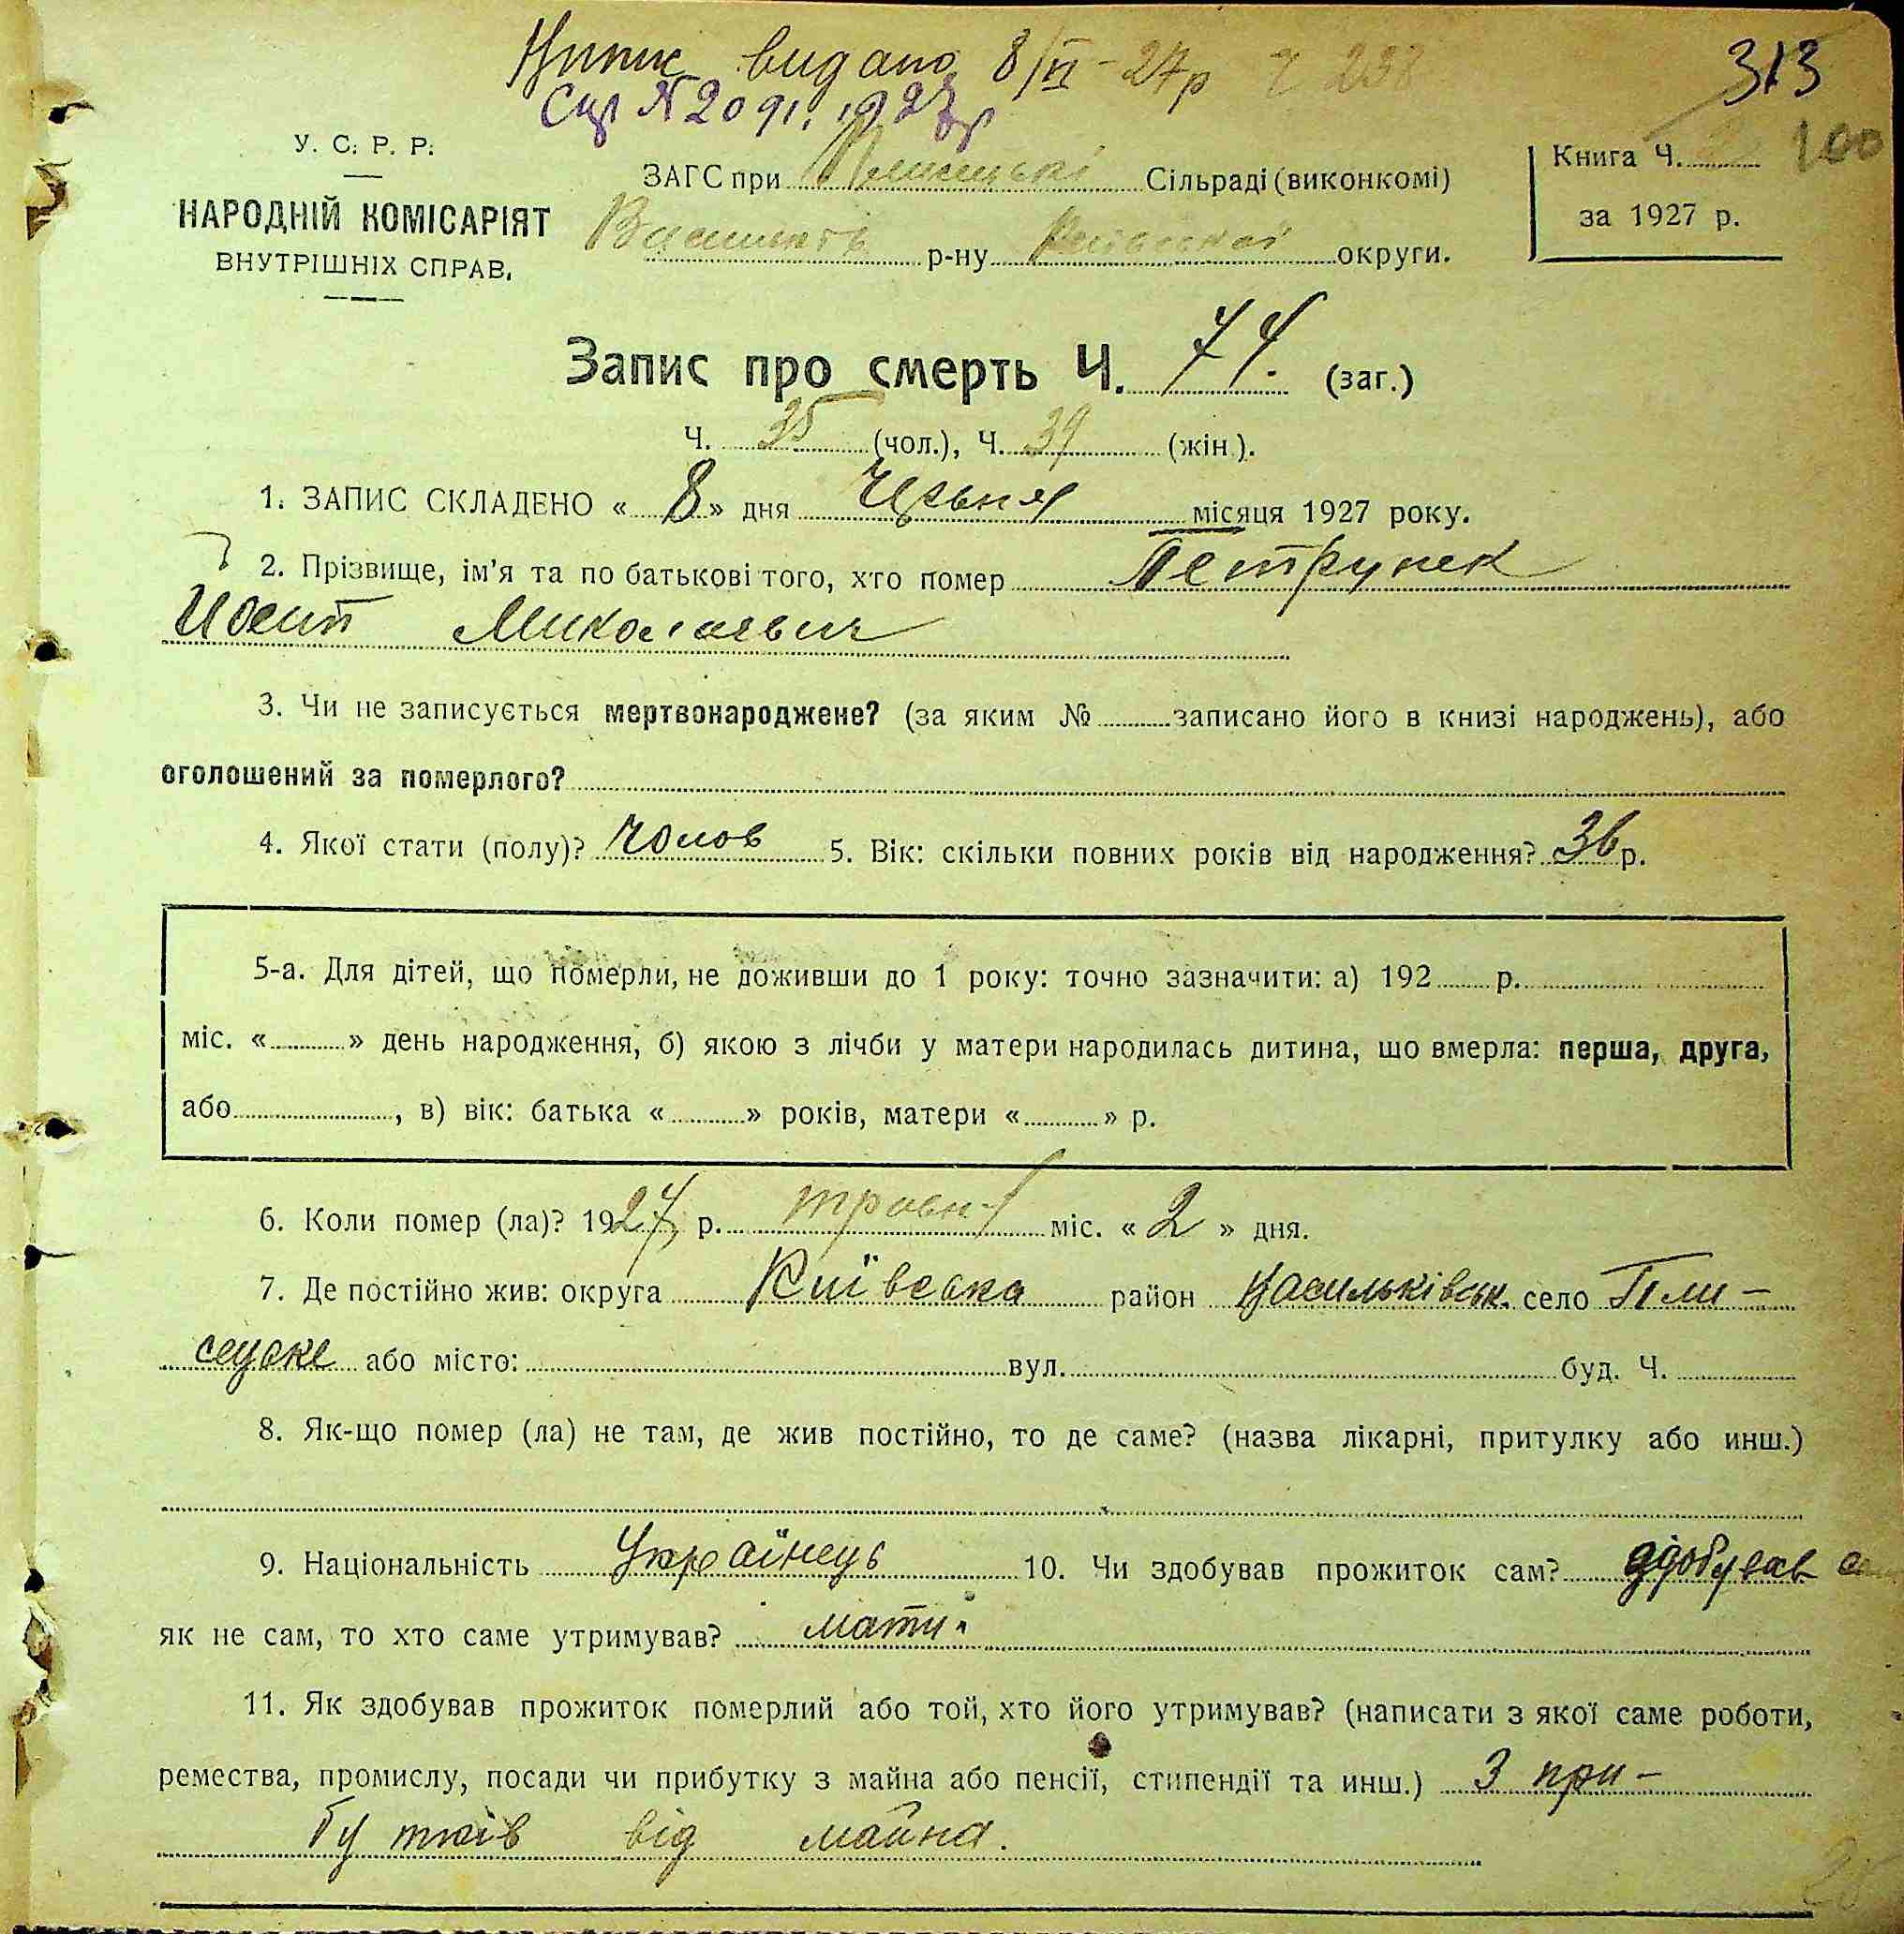 видано 8/VI - 27р
№ 2091. 1927р
313
100
У. С. Р. Р.
НАРОДНІЙ КОМІСАРІЯТ
ВНУТРІШНІХ СПРАВ.
ЗАГС при Сільраді (виконкомі)
р-ну округи.
Книга Ч.
за 1927 р.
Запис про смерть Ч. 74. (заг.)
Ч. 35 (чол.), Ч. 39 (жін.).
1. ЗАПИС СКЛАДЕНО « 8 » дня Червня місяця 1927 року.
2. Прізвище, ім'я та по батькові того, хто помер Петрунек
Йосип Миколаєвич
3. Чи не записується мертвонароджене? (за яким № записано його в книзі народжень), або
оголошений за померлого?
4. Якої стати (полу)? Чолов 5. Вік: скільки повних років від народження? 36 р.
5-а. Для дітей, що померли, не доживши до 1 року: точно зазначити: а) 192 р.
міс. « » день народження, б) якою з лічби у матери народилась дитина, що вмерла: перша, друга,
або , в) вік: батька « » років, матери « » р.
6. Коли помер (ла)? 1927 р. травня міс. « 2 » дня.
7. Де постійно жив: округа Київська район Васильківськ. село Пли-
сецьке або місто: вул. буд. Ч.
8. Як-що помер (ла) не там, де жив постійно, то де саме? (назва лікарні, притулку або инш.)
9. Національність Українець 10. Чи здобував прожиток сам? здобував
як не сам, то хто саме утримував? мати
11. Як здобував прожиток померлий або той, хто його утримував? (написати з якої саме роботи,
ремества, промислу, посади чи прибутку з майна або пенсії, стипендії та инш.) З при-
бутків від майна.